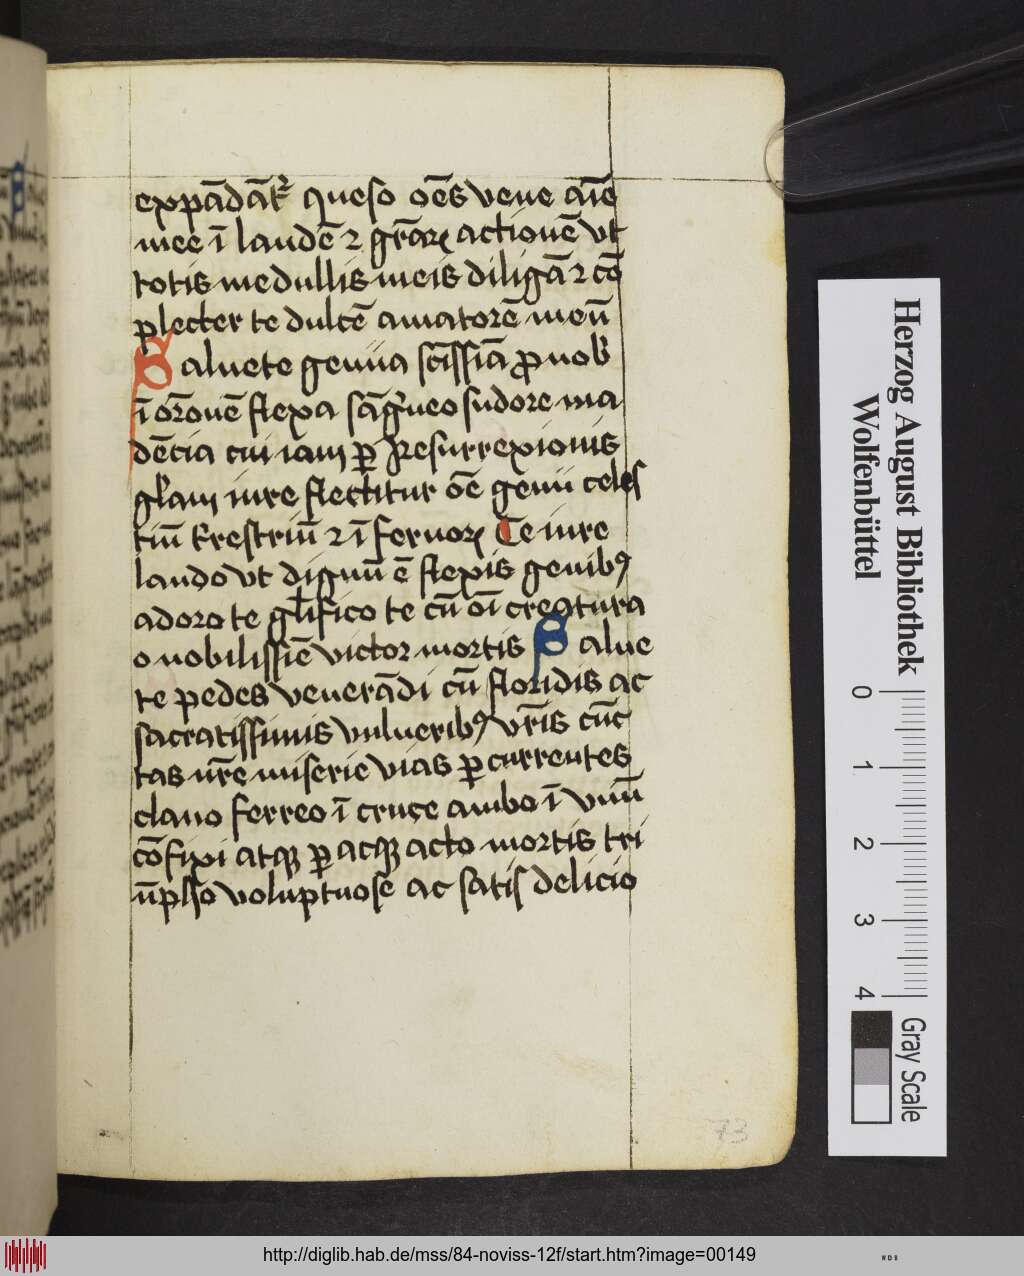 expādāt᷑ queso oēs vene aīe
mee ī laudē ⁊ gr̄aꝝ actionē vt
totis medullis meis diligā ⁊ cō
plecter te dulcē amatorē meū
Saluete genua sc̄issīa ꝓ nob̄
ī or̄onē flexa sāgͥneo sudore ma
dēcia cui iam ꝑ Resurrexionis
gl̄am iure flectitur oē genu celes
tiū t̄restriū ⁊ ī fernoꝝ Te iure
laudo vt dignū ē flexis genibꝰ
adoro te gl̄ifico te cū oī creatura
o nobilissīe victor mortis Salue
te pedes venerādi cū floridis ac
sacratissimis vulneribꝰ vr̄is cūc
tas nr̄e miserie vias ꝑcurrentes
clauo ferreo ī cruce ambo ī vnū
cōfixi atqꝫ ꝑ acqꝫ acto mortis tri
ūpho voluptuose ac satis delicio
73
Herzog August Bibliothek
Wolfenbüttel
0 1 2 3 4
Gray Scale
http://diglib.hab.de/mss/84-noviss-12f/start.htm?image=00149
WDB